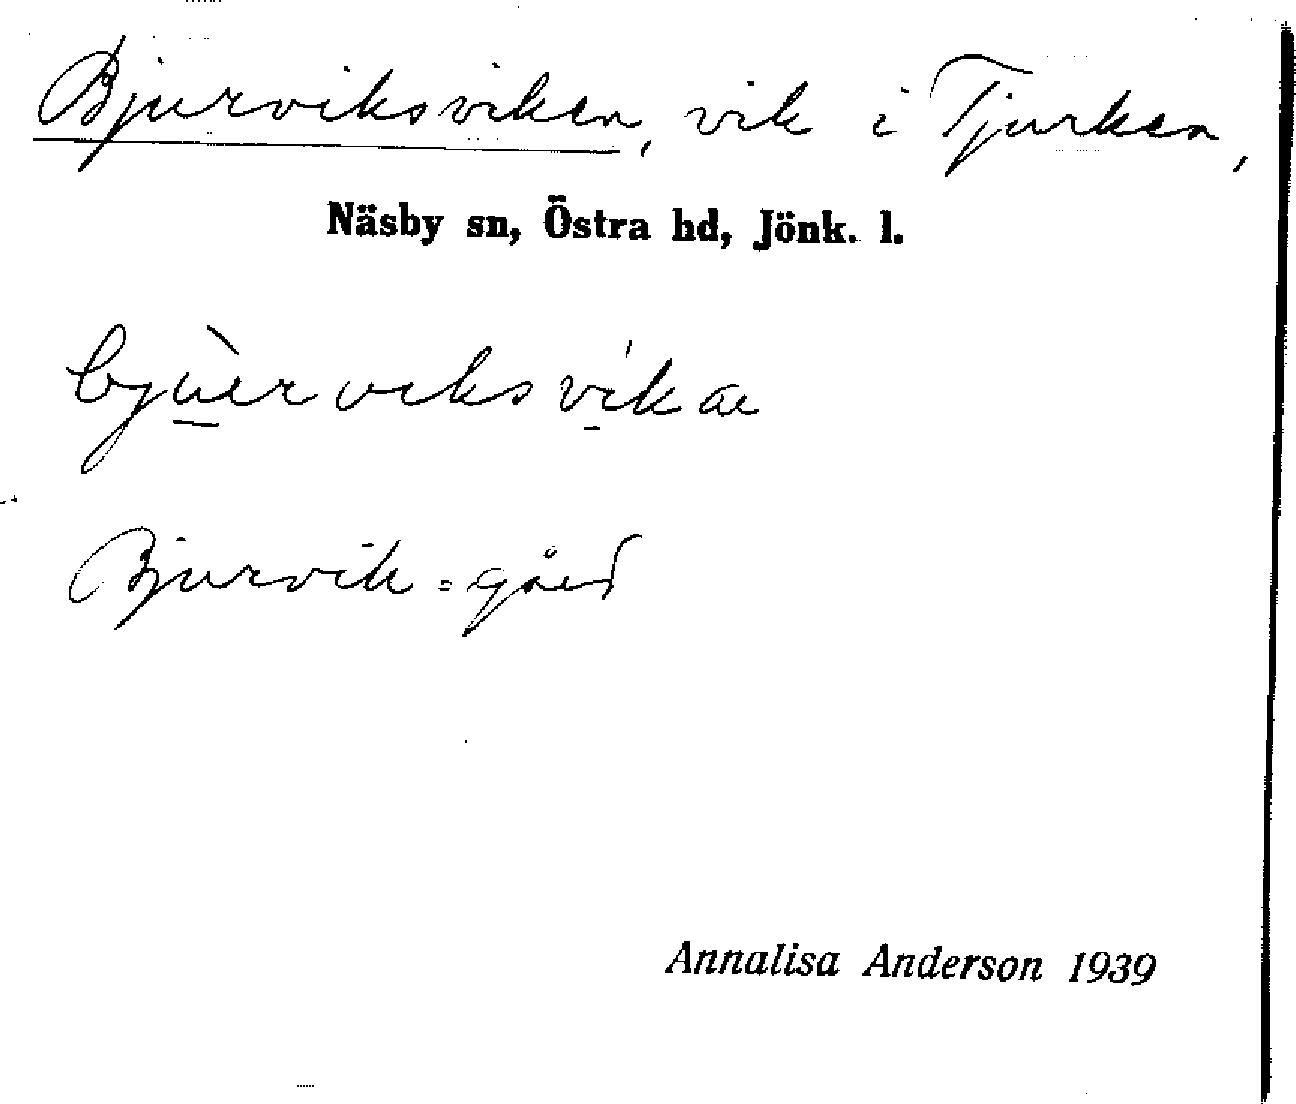 Bjurviksviken, vik i Tjurken,
Näsby sn, Östra hd, Jönk. l.
Bjurvik = gård
Annalisa Anderson 1939